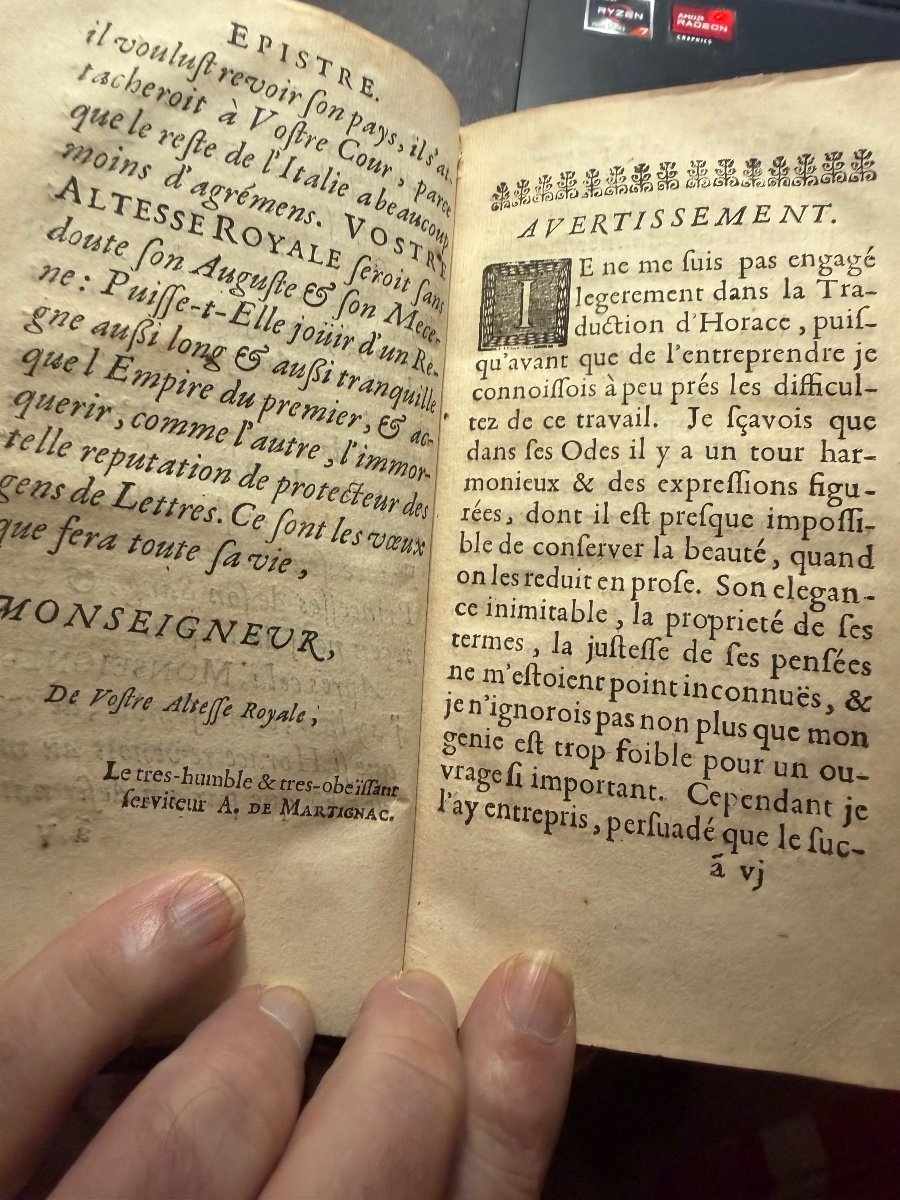 EPISTRE.
il vouluſt revoir ſon pays, il s'at-
tacheroit à Voſtre Cour, parce
que le reſte de l'Italie a beaucoup
moins d'agrémens. VOSTRE
ALTESSE ROYALE ſeroit ſans
doute ſon Auguſte & ſon Mece-
ne : Puiſſe-t-Elle joüir d'un Re-
gne auſſi long & auſſi tranquille
que l Empire du premier, & ac-
querir, comme l'autre, l'immor-
telle reputation de protecteur des
gens de Lettres. Ce ſont les vœux
que fera toute ſa vie,
MONSEIGNEUR,
De Voſtre Alteſſe Royale,
Le tres-humble & tres-obeïſſant
ſerviteur A. DE MARTIGNAC.
AVERTISSEMENT.
IE ne me ſuis pas engagé
legerement dans la Tra-
duction d'Horace, puiſ-
qu'avant que de l'entreprendre je
connoiſſois à peu prés les difficul-
tez de ce travail. Je ſçavois que
dans ſes Odes il y a un tour har-
monieux & des expreſſions figu-
rées, dont il eſt preſque impoſſi-
ble de conſerver la beauté, quand
on les reduit en proſe. Son elegan-
ce inimitable, la proprieté de ſes
termes, la juſteſſe de ſes penſées
ne m'eſtoient point inconnuës, &
je n'ignorois pas non plus que mon
genie eſt trop foible pour un ou-
vrage ſi important. Cependant je
l'ay entrepris, perſuadé que le ſuc-
ã vj
RYZEN
7
AMD
RADEON
GRAPHICS